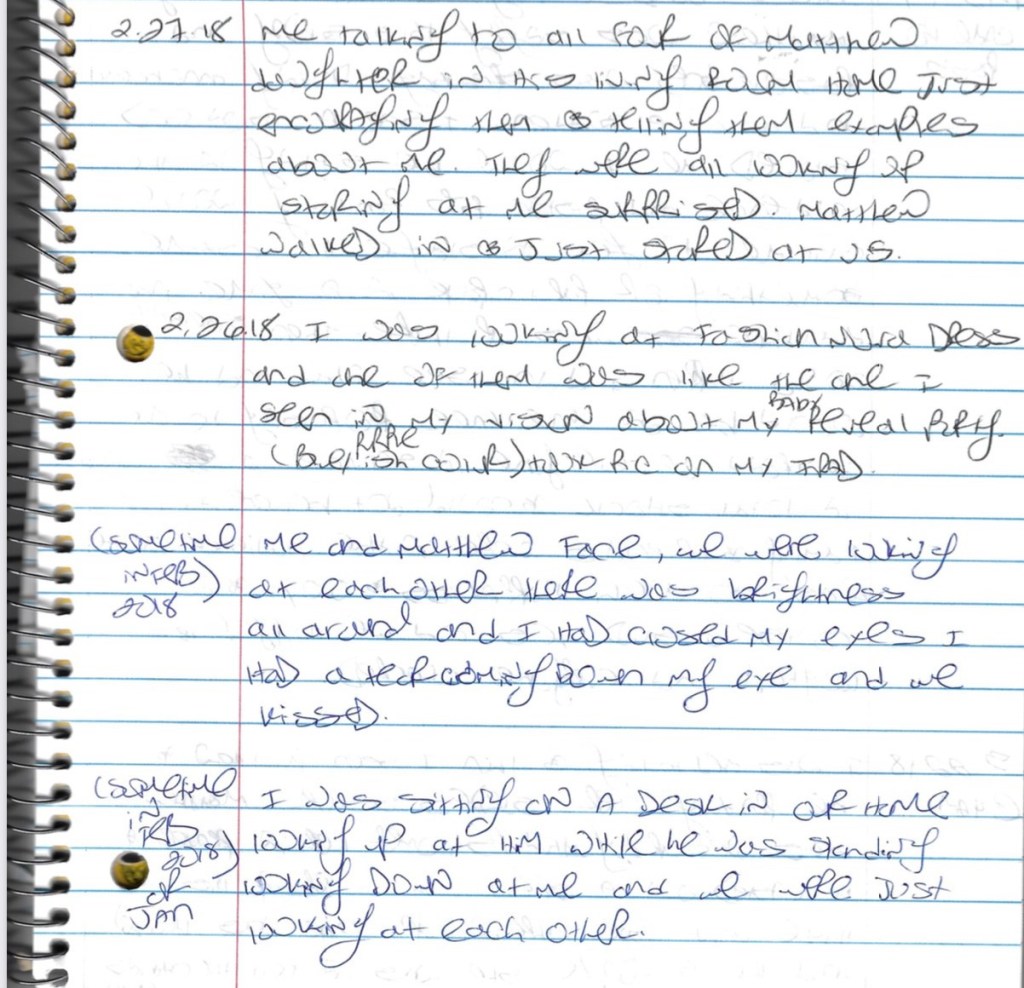 2.27.18 Me talking to all four of Matthew
daughter in the living room home Just
encouraging them & telling them examples
about me. They were all looking up
staring at me surprised. Matthew
walked in & Just stared at us.
2.26.18 I was looking at Fashion Nova Dress
and one of them was like the one I
seen in my vision about my baby reveal party.
on my IPAD.
(sometime in FEB) 2018 Me and Matthew Face, we were looking
at each other there was brightness
all around and I had closed my eyes I
had a tear coming down my eye and we
kissed.
(sometime in FEB 2018) or JAN I was sitting on a Desk in our home
looking up at him while he was standing
looking down at me and we were Just
looking at each other.